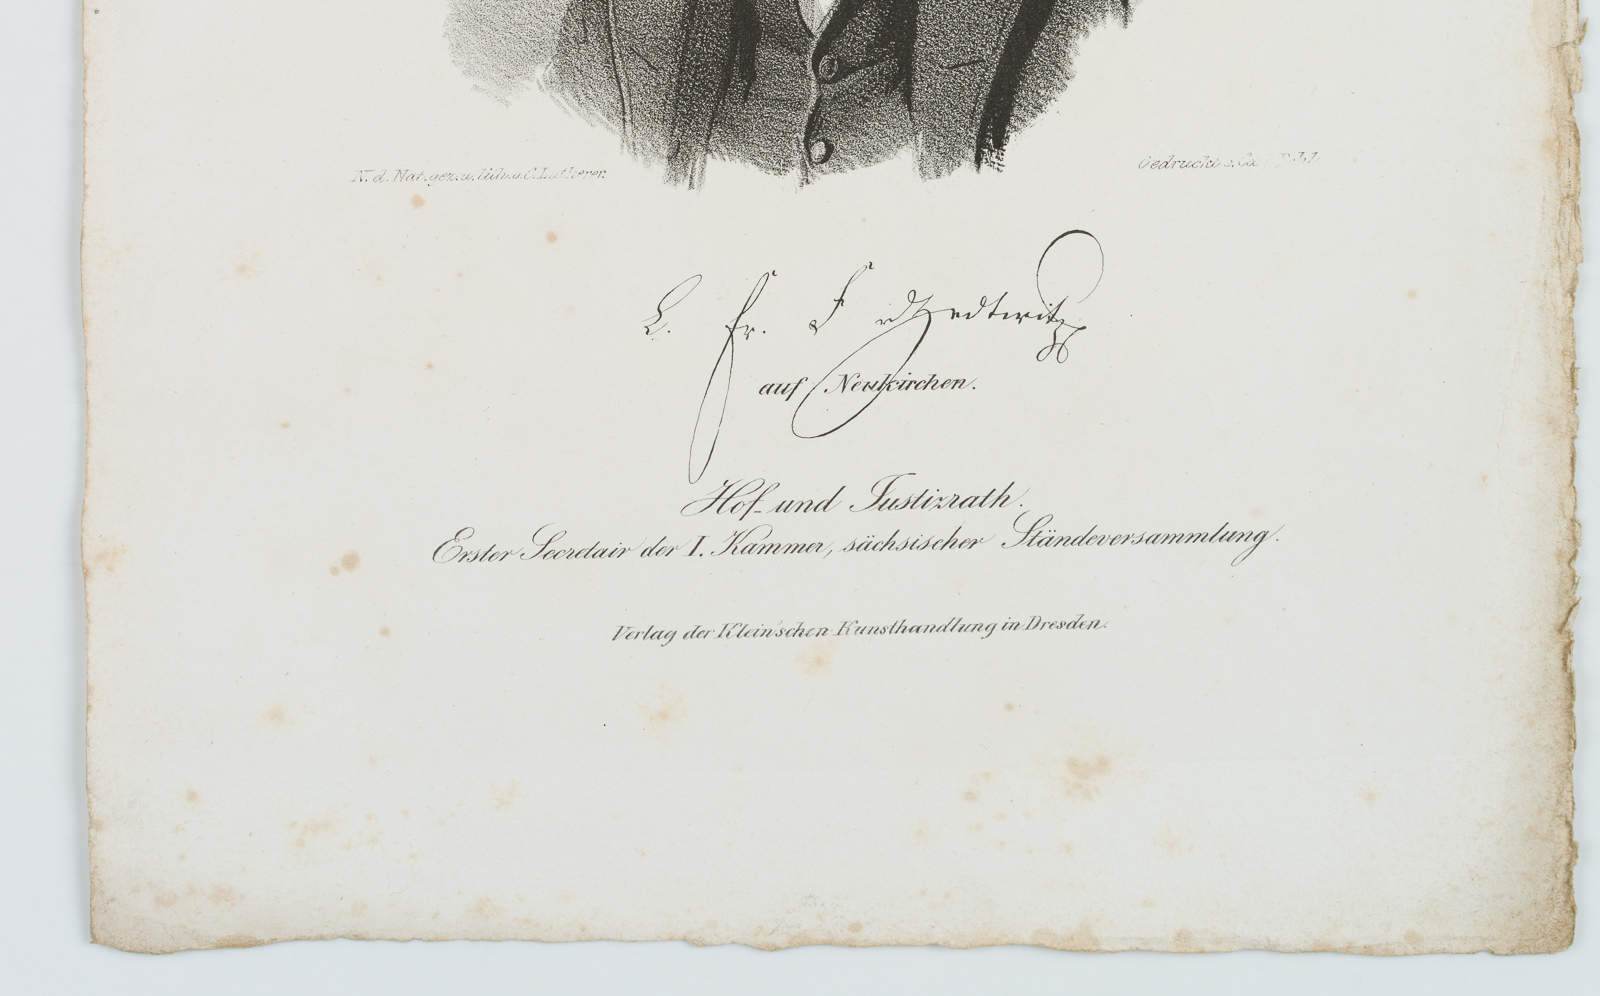 N. d. Nat. gez. u. lith. v. C. Lutherer.
Gedruckt
L. Fr. F v Zedtwitz
auf Neukirchen.
Hof- und Justizrath.
Erster Secretair der I. Kammer, sächsischer Ständeversammlung.
Verlag der Klein'schen Kunsthandlung in Dresden.